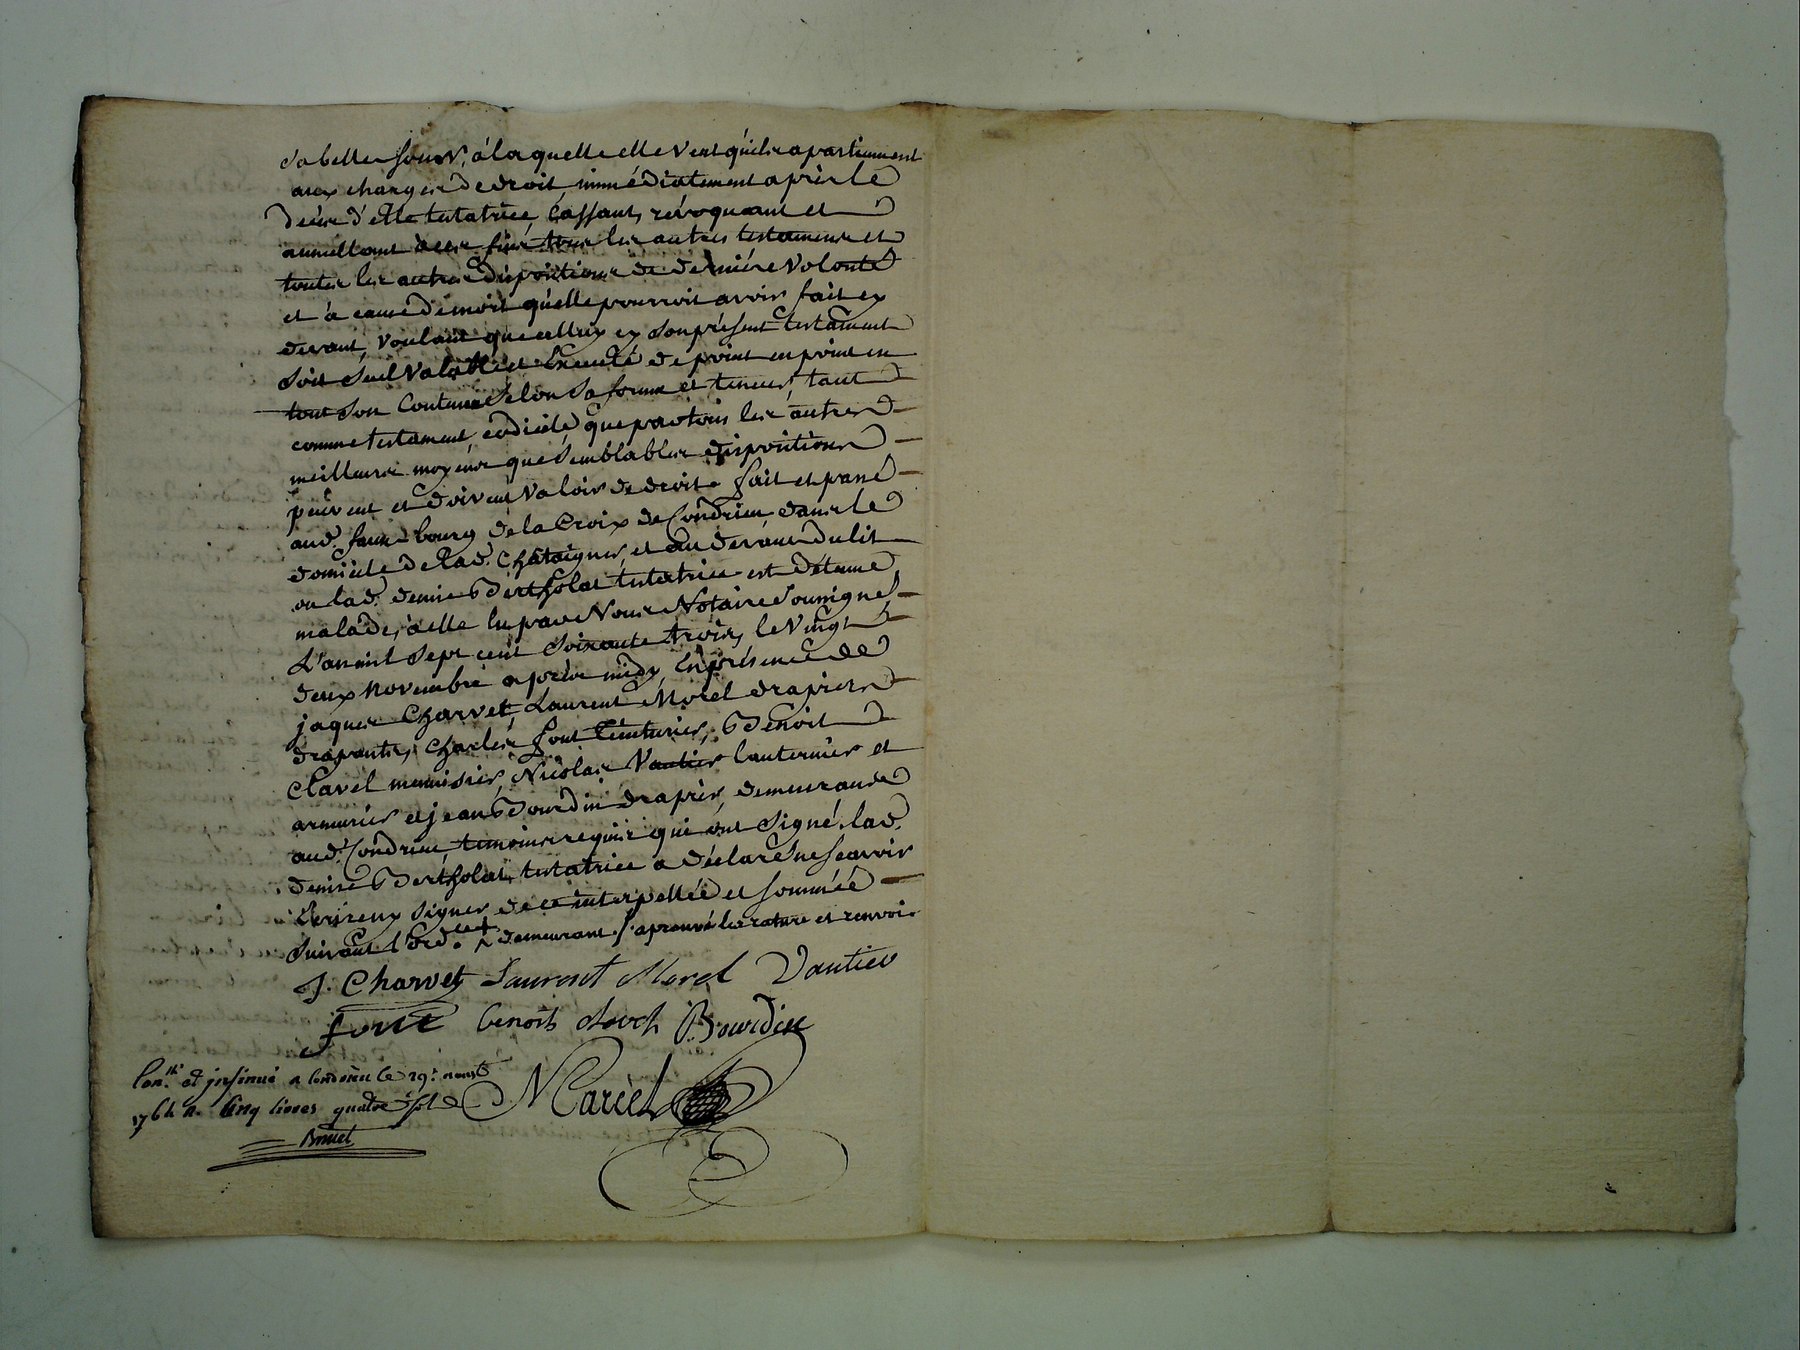 sa belle soeur, á laquelle elle veut qu'ils apartiennent
aux charges de droit, immédiatement après le
décès d'elle testatrice, cassant, révoquant et
annullant à ces fins tous les autres testamens et
toutes les autres dispositions de dernière volonté
et à cause de mort qu'elle pourroit avoir fait cy
devant, voulant que celluy cy son présent testament
soit seul valable et executé de point en point en
tout son contenu selon sa forme et teneur, tant
comme testament, codicile que par tous les autres
meilleurs moyens que semblables dispositions
peuvent et doivent valoir de droit. fait et passé
aud. fauxbourg de la Croix de Condrieu, dans le
domicile de lad. Chataigner, et au devant du lit
ou lad. denise Bertholat testatrice est détenue
malade, à elle lu par Nous Notaire soussigné,
L'an mil sept cent soixante trois, le vingt
deux novembre après midy, En présence de
jaques Charvet, Laurent Morel drapiers
drapants, Charles font teinturier, Benoit
Clavel menuisier, Nicolas Vautier lanternier et
armurier et jean Bourdin drapier, demeurans
aud. Condrieu temoins requis qui ont signé. lad.
denise Bertholat testatrice a déclaré ne scavoir
Ecrire ny signer de ce interpellée et sommée
suivant l'ord.ce + demeurant /. aprouvé les rature et renvoi
J. Charvet Laurent Morel Vautier
font benoit clavel Bourdin
Con.llé et insinué a Condrieu le 29.e
1764 R. Cinq livres quatre sols
Marcel